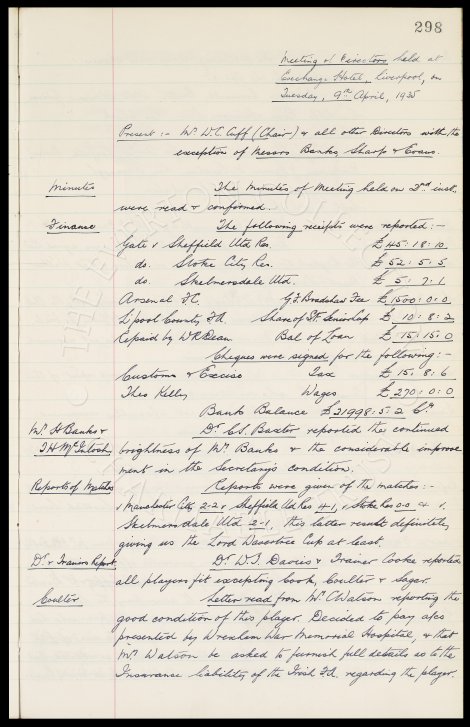 298
Meeting of Directors held at
Exchange Hotel, Liverpool, on
Tuesday, 9th April, 1935
Present :- Mr W.C. Cuff (Chair) & all other Directors with the
exception of Messrs Banks, Sharp & Evans.
Minutes The Minutes of Meeting held on 2nd inst.
were read & confirmed.
Finance The following receipts were reported :-
Gate v Sheffield Utd Res. £45:18:10
do. Stoke City Res. £52:5:5
do. Skelmersdale Utd. £5:7:1
Arsenal F.C. G.F. Bradshaw Fee £1500:0:0
L'pool County F.A. Share of Senior Cup £10:8:2
Repaid by W.R. Dean Bal of Loan £15:15:0
Cheques were signed for the following :-
Customs & Excise Tax £15:8:6
Theo Kelly Wages £270:0:0
Bank Balance £21998:5:2 Cr
Mr H. Banks & Dr C.S. Baxter reported the continued
T.H. McIntosh brightness of Mr Banks & the considerable improve
ment in the Secretary's condition.
Reports of Matches Reports were given of the matches :-
v Manchester City 2-2, v Sheffield Utd Res 4-1, v Stoke Res 0-0 & v
Skelmersdale Utd 2-1, this latter result definitely
giving us the Lord Wavertree Cup at least.
Dr & Trainers Report Dr W.J. Davies & Trainer Cooke reported
all players fit excepting Cook, Coulter & Sagar.
Coulter Letter read from Mr C Watson reporting the
good condition of this player. Decided to pay a/cs
presented by Wrexham War Memorial Hospital, & that
Mr Watson be asked to furnish full details as to the
Insurance liability of the Irish F.A. regarding the player.